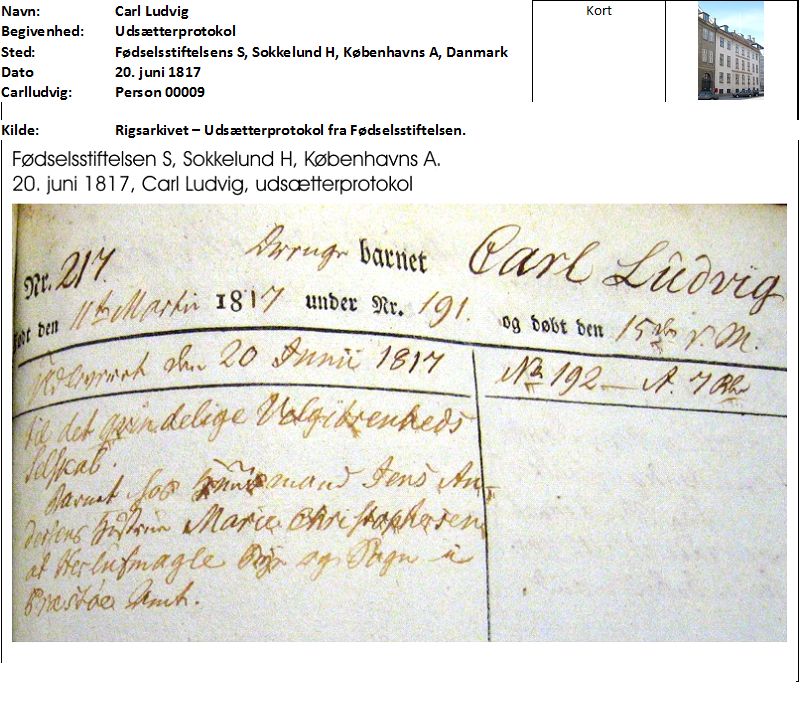 Navn: Carl Ludvig
Begivenhed: Udsætterprotokol
Sted: Fødselsstiftelsens S, Sokkelund H, Københavns A, Danmark
Dato 20. juni 1817
Carlludvig: Person 00009
Kort
Kilde: Rigsarkivet – Udsætterprotokol fra Fødselsstiftelsen.
Fødselsstiftelsen S, Sokkelund H, Københavns A.
20. juni 1817, Carl Ludvig, udsætterprotokol
Nr. 217. Drenge barnet Carl Ludvig
født den 11te Martii 1817 under Nr. 191. og døbt den 15de s. M.
Udleveret den 20 Junii 1817
No 192 — A. 7 Rbr
til det qvindelige Velgiörenheds
Selskab.
Barnet hos Huusmand Jens An-
dersens Hustrue Marie Christophersen
at Herlufmagle Bye og Sogn i
Præstøe Amt.